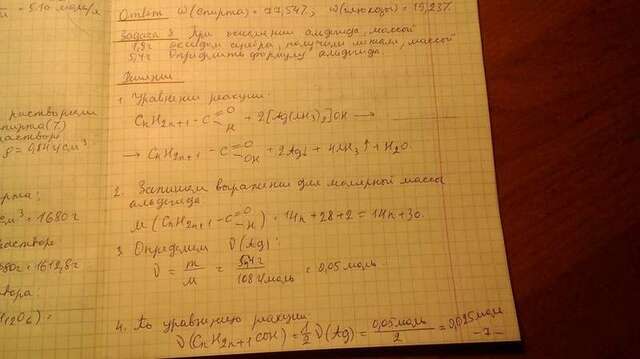 = 510 моль/л
Ответ: ω(спирта) = 77,54%, ω(глюкозы) = 19,23%
Задача 8. При окислении альдегида, массой
1,8г оксидом серебра, получили металл, массой
5,4г. Определить формулу альдегида.
Решение
1. Уравнение реакции:
CnH2n+1-C=O H + 2[Ag(NH3)2]OH →
→ CnH2n+1-C=O OH + 2Ag↓ + 4NH3↑ + H2O.
2. Запишем выражение для молярной массы
альдегида
M(CnH2n+1-C=O -H) = 14n+28+2 = 14n+30.
3. Определяем ν(Ag):
ν = m/M = 5,4г/108г/моль = 0,05 моль.
4. По уравнению реакции
ν(CnH2n+1COH) = 1/2 ν(Ag) = 0,05моль/2 = 0,025моль
-7-
растворили
спирта(?)
раствора
ρ = 0,84г/см³
см³ = 1680г
раствора
680г = 1612,8г
H12O6) =